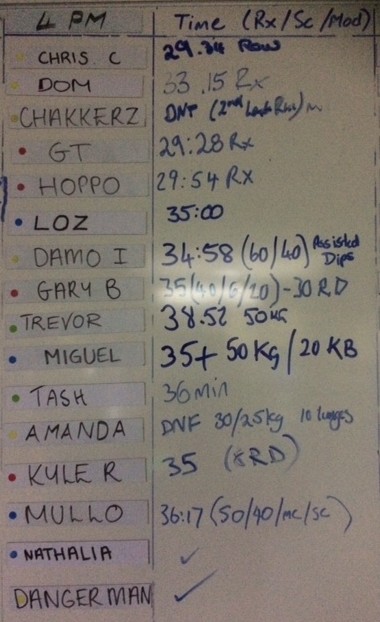 4 PM Time (Rx/Sc/Mod)
CHRIS. C 29.34 Row
DOM 33.15 Rx
CHAKKERZ DNF (2nd Last Run) m
GT 29:28 Rx
HOPPO 29:54 Rx
LOZ 35:00
DAMO I 34:58 (60/40) Assisted Dips
GARY B 35(40/G/20)-30 RD
TREVOR 38.52 50KG
MIGUEL 35+ 50Kg/20 KB
TASH 36min
AMANDA DNF 30/25kg 10 lunges
KYLE R 35 (8RD)
MULLO 36:17 (50/40/mc/sc)
NATHALIA ✓
DANGERMAN ✓